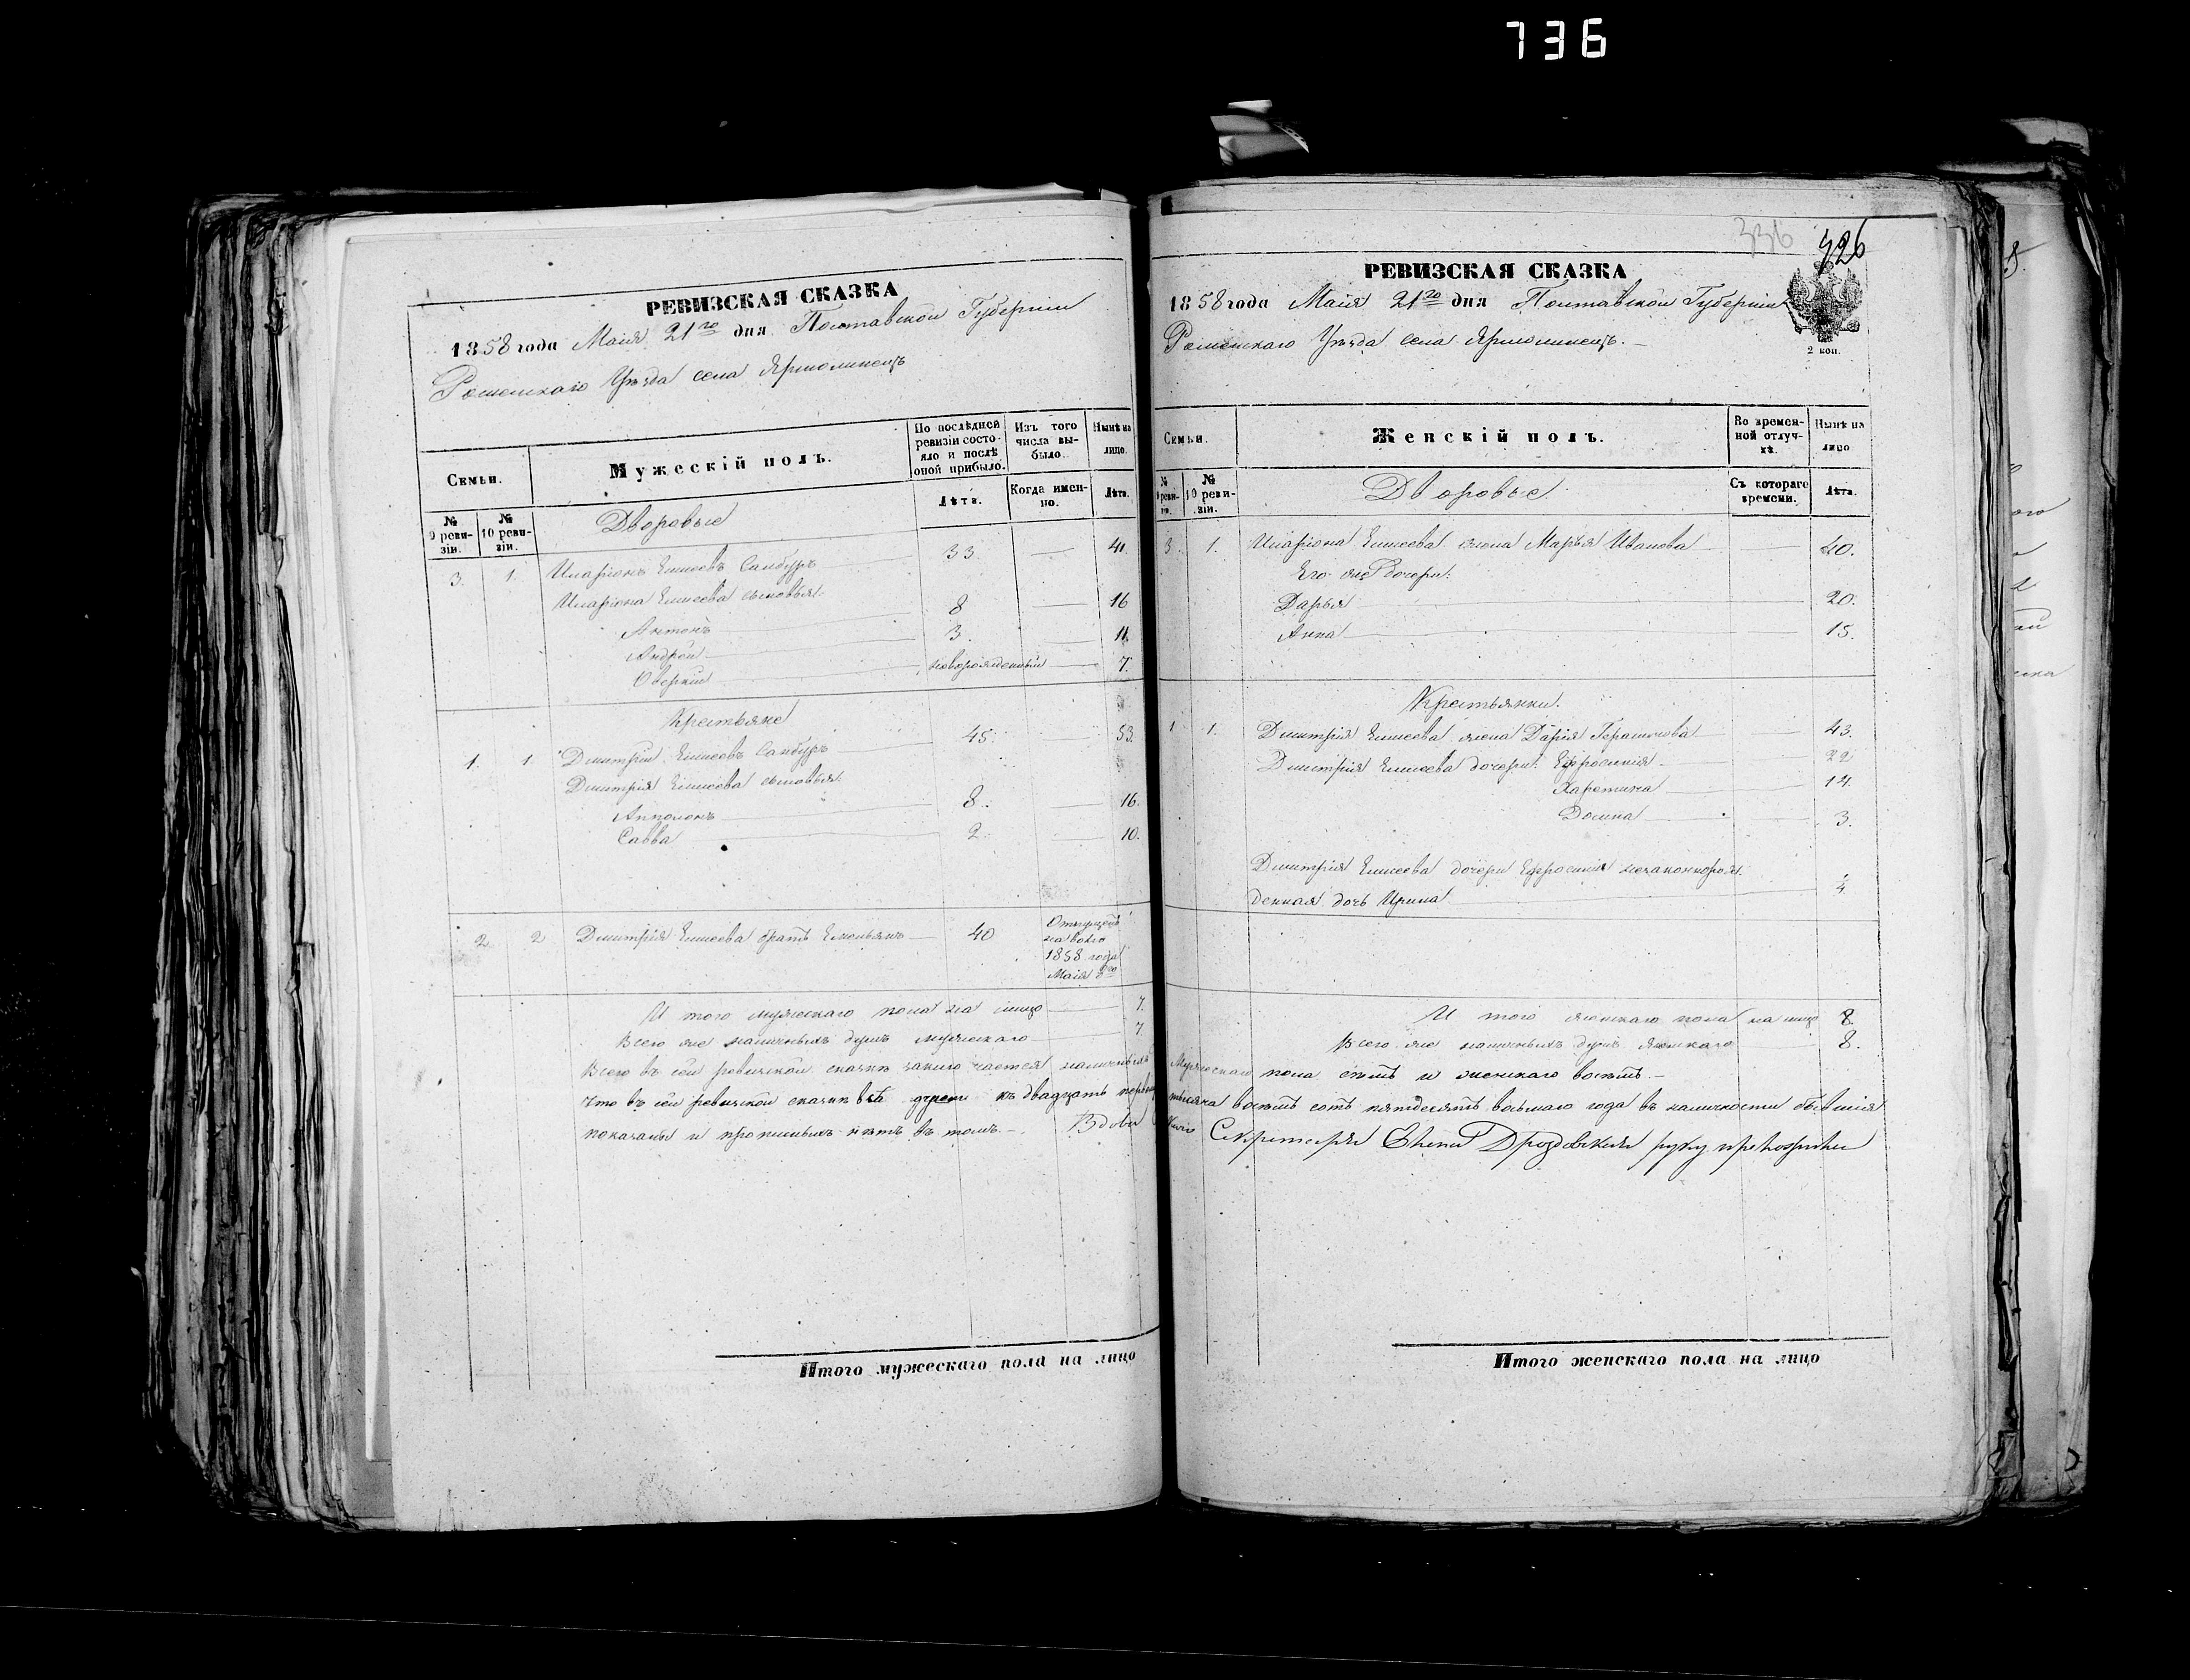 736
РЕВИЗСКАЯ СКАЗКА
1858 года Маія 21го дня Полтавской Губерніи
Роменскаго Уѣзда села Ярмолинецъ
Семьи.
Мужескій полъ.
По послѣдней ревизіи состояло и послѣ оной прибыло.
Изъ того числа выбыло.
Нынѣ на лицо.
№ 9 ревизіи.
№ 10 ревизіи.
Дворовые
Лѣта.
Когда именно.
Лѣта.
3. 1. Иларіонъ Елисеевъ Самбуръ 33. 41.
Иларіона Елисеева сыновья:
Антонъ 8 16
Андрей 3. 11.
Оверкій новорожденный 7.
Крестьяне
1. 1. Дмитрій Елисеевъ Самбуръ 45. 53.
Дмитрія Елисеева сыновья:
Апполонъ 8. 16.
Савва 2. 10.
2 2 Дмитрія Елисеева братъ Емельянъ 40
Отпущенъ
на волю
1858 года
Маія 8го
И того мужескаго пола на лицо 7.
Всего же наличныхъ душъ мужескаго 7.
Всего въ сей ревизской сказкѣ заключается наличныхъ
Что въ сей ревизской сказкѣ всѣ души къ двадцать первому
показаны и прописныхъ нѣтъ въ томъ. Вдова
326
336
РЕВИЗСКАЯ СКАЗКА
1858 года Маія 21го дня Полтавской Губерніи
Роменскаго Уѣзда села Ярмолинецъ.
2 коп.
Семьи.
Женскій полъ.
Во временной отлучкѣ.
Нынѣ на лицо
№ 9 ревизіи.
№ 10 ревизіи.
Дворовые
Съ котораго времени.
Лѣта.
3. 1. Иларіона Елисеева жена Марья Иванова 40.
Его же дочери:
Дарья 20.
Анна 15.
Крестьянки.
1 1. Дмитрія Елисеева жена Дарія Герасимова 43.
Дмитрія Елисеева дочери: Ефросинія 22
Харетина 14.
Домна 3.
Дмитрія Елисеева дочери Ефросиніи незаконнорож
денная дочь Ирина 4.
И того женскаго пола на лицо 8.
Всего же наличныхъ душъ женскаго 8.
Мужескаго пола семь и женскаго восемь.
тысяча восемь сотъ пятдесятъ восьмаго года въ наличности бывшія
Секретарша Елена Дроздовская руку приложила
Итого мужескаго пола на лицо
Итого женскаго пола на лицо